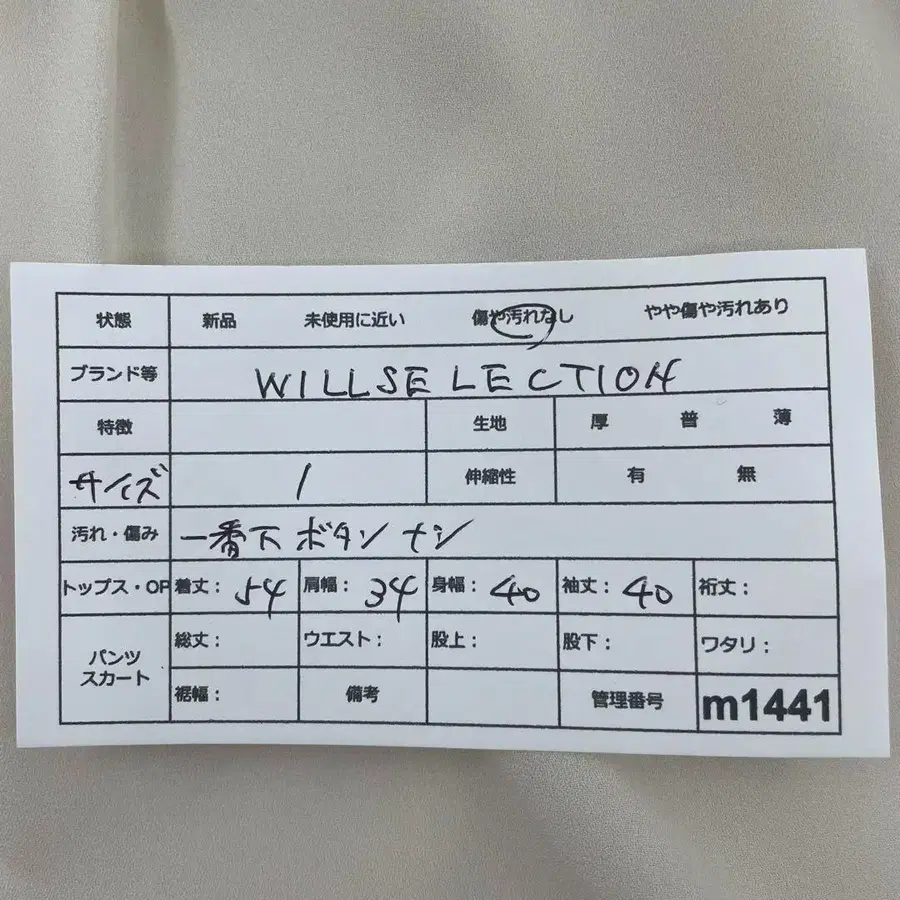 状態 新品 未使用に近い 傷や汚れなし やや傷や汚れあり
ブランド等 WILLSELECTION
特徴 生地 厚 普 薄
サイズ 1 伸縮性 有 無
汚れ・傷み 一番下ボタンナシ
トップス・OP 着丈: 54 肩幅: 34 身幅: 40 袖丈: 40 裄丈:
パンツ スカート 総丈: ウエスト: 股上: 股下: ワタリ:
裾幅: 備考 管理番号 m1441